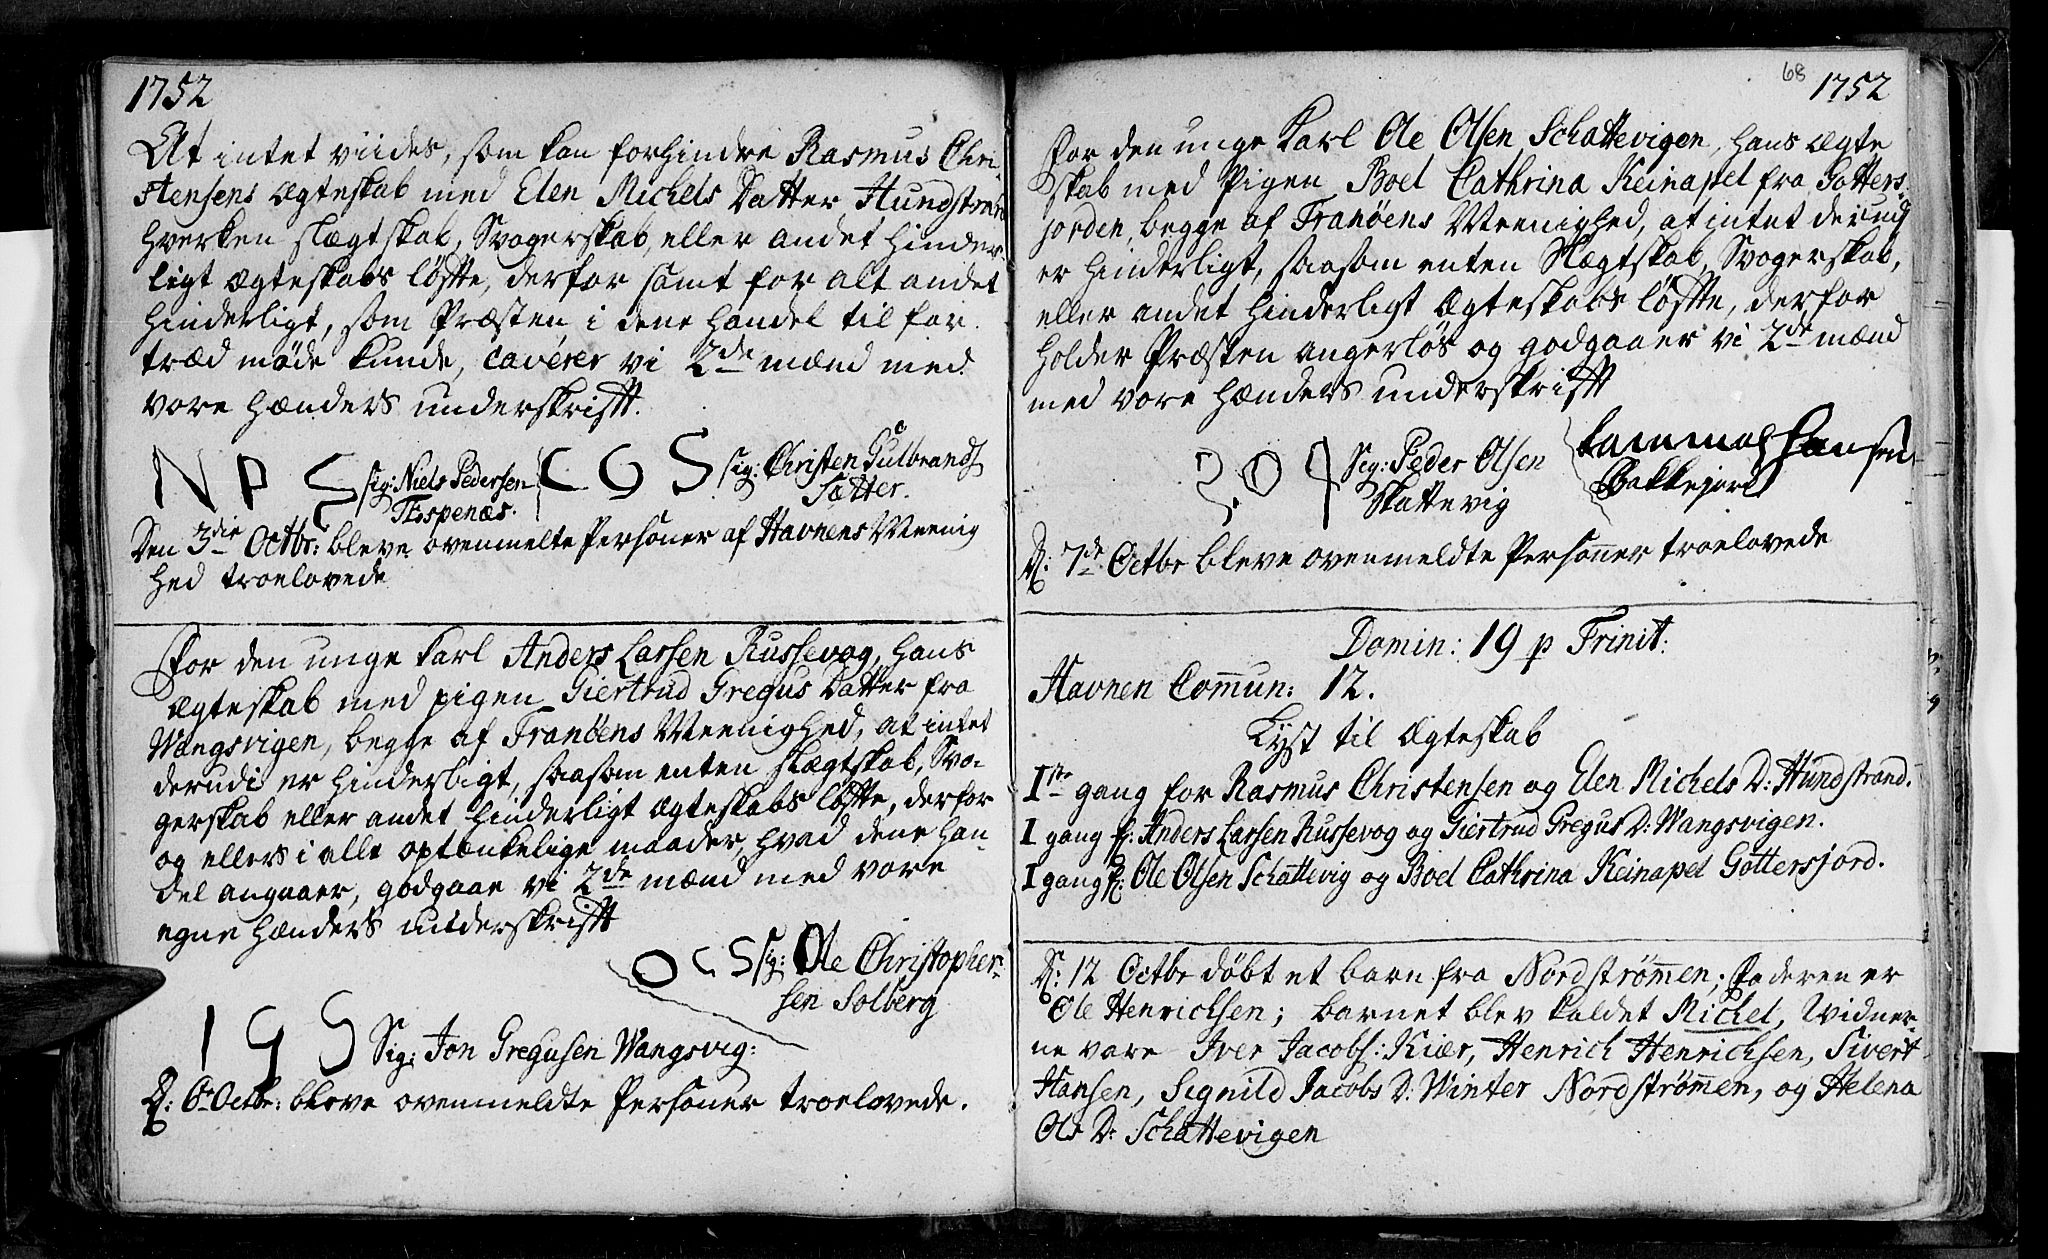 1752
At intet viides, som kan forhindre Rasmus Chri-
stensens Ægteskab med Elen Michels Datter Hundstrand
hverken slægtskab, Svogerskab, eller andet hinder-
ligt Ægteskabs løffte, derfor samt for alt andet
hinderligt, som Præsten i dene handel til for-
træd møde kunde, caverer vi 2de mænd med
vore hænders underskrifft.
N P S sig: Niels Pedersen C G S sig: Christen Gulbrands
Espenæs. Sætter.
Den 3die Octbr: bleve ovenmelte Personer af Havnens Meenig
hed troelovede
For den unge Karl Anders Larsen Russevog, hans
Ægteskab med pigen Giertrud Gregus Datter fra
Wangsvigen, begge af Tranöens Meenighed, at intet
derudi er hinderligt, saasom enten slægtskab, Svo-
gerskab eller andet hinderligt Ægteskabs løffte, derfor
og ellers i alle optænkelige maader, hvad dene han-
del angaaer, godgaar vi 2de mænd med vore
egne hænders underskrifft
O C S sig: Ole Christopher-
sen Solberg
I G S Sig: Jon Gregusen Wangsvig:
D: 6 Octbr: bleve ovenmeldte Personer troelovede.
68
1752
For den unge Karl Ole Olsen Schattevigen, hans Ægte
skab med Pigen Boel Cathrina Keinapel fra Gotters-
jorden, begge af Tranöens Meenighed, at intet derudj
er hinderligt, saasom enten Slægtskab, Svogerskab,
eller andet hinderligt Ægteskabs løffte, derfor
holder Præsten angerløs og godgaaer vi 2de mænd
med vore hænders underskrifft
Sig: Peder Olsen Hansen
Skattevig Bakkejord
D: 7de Octbr bleve ovenmeldte Personer troelovede
Domin: 19 p Trinit:
Havnen Commun: 12.
Lyst til Ægteskab
1ste gang for Rasmus Christensen og Elen Michels D: Hundstrand.
1 gang f: Anders Larsen Russevog og Giertrud Gregus D: Wangsvigen.
1 gang f: Ole Olsen Schattevig og Boel Cathrina Keinapel Gottersjord.
D: 12 Octbr døbt et barn fra Nordströmmen; Faderen er
Ole Henrichsen; barnet blev kaldet Michel, Widner-
ne vare Iver Jacobs: Kiær, Henrich Henrichsen, Sivert
Hansen, Segnild Jacobs D: Winter Nordströmmen, og Helena
Ols D: Schattevigen